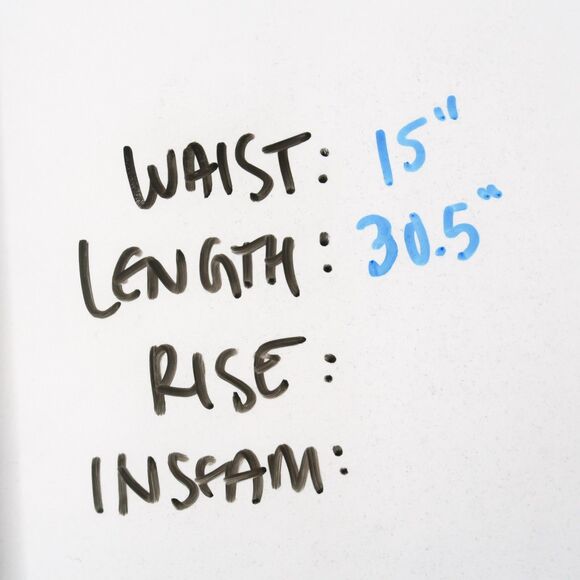 WAIST: 15"
LENGTH: 30.5"
RISE:
INSEAM: